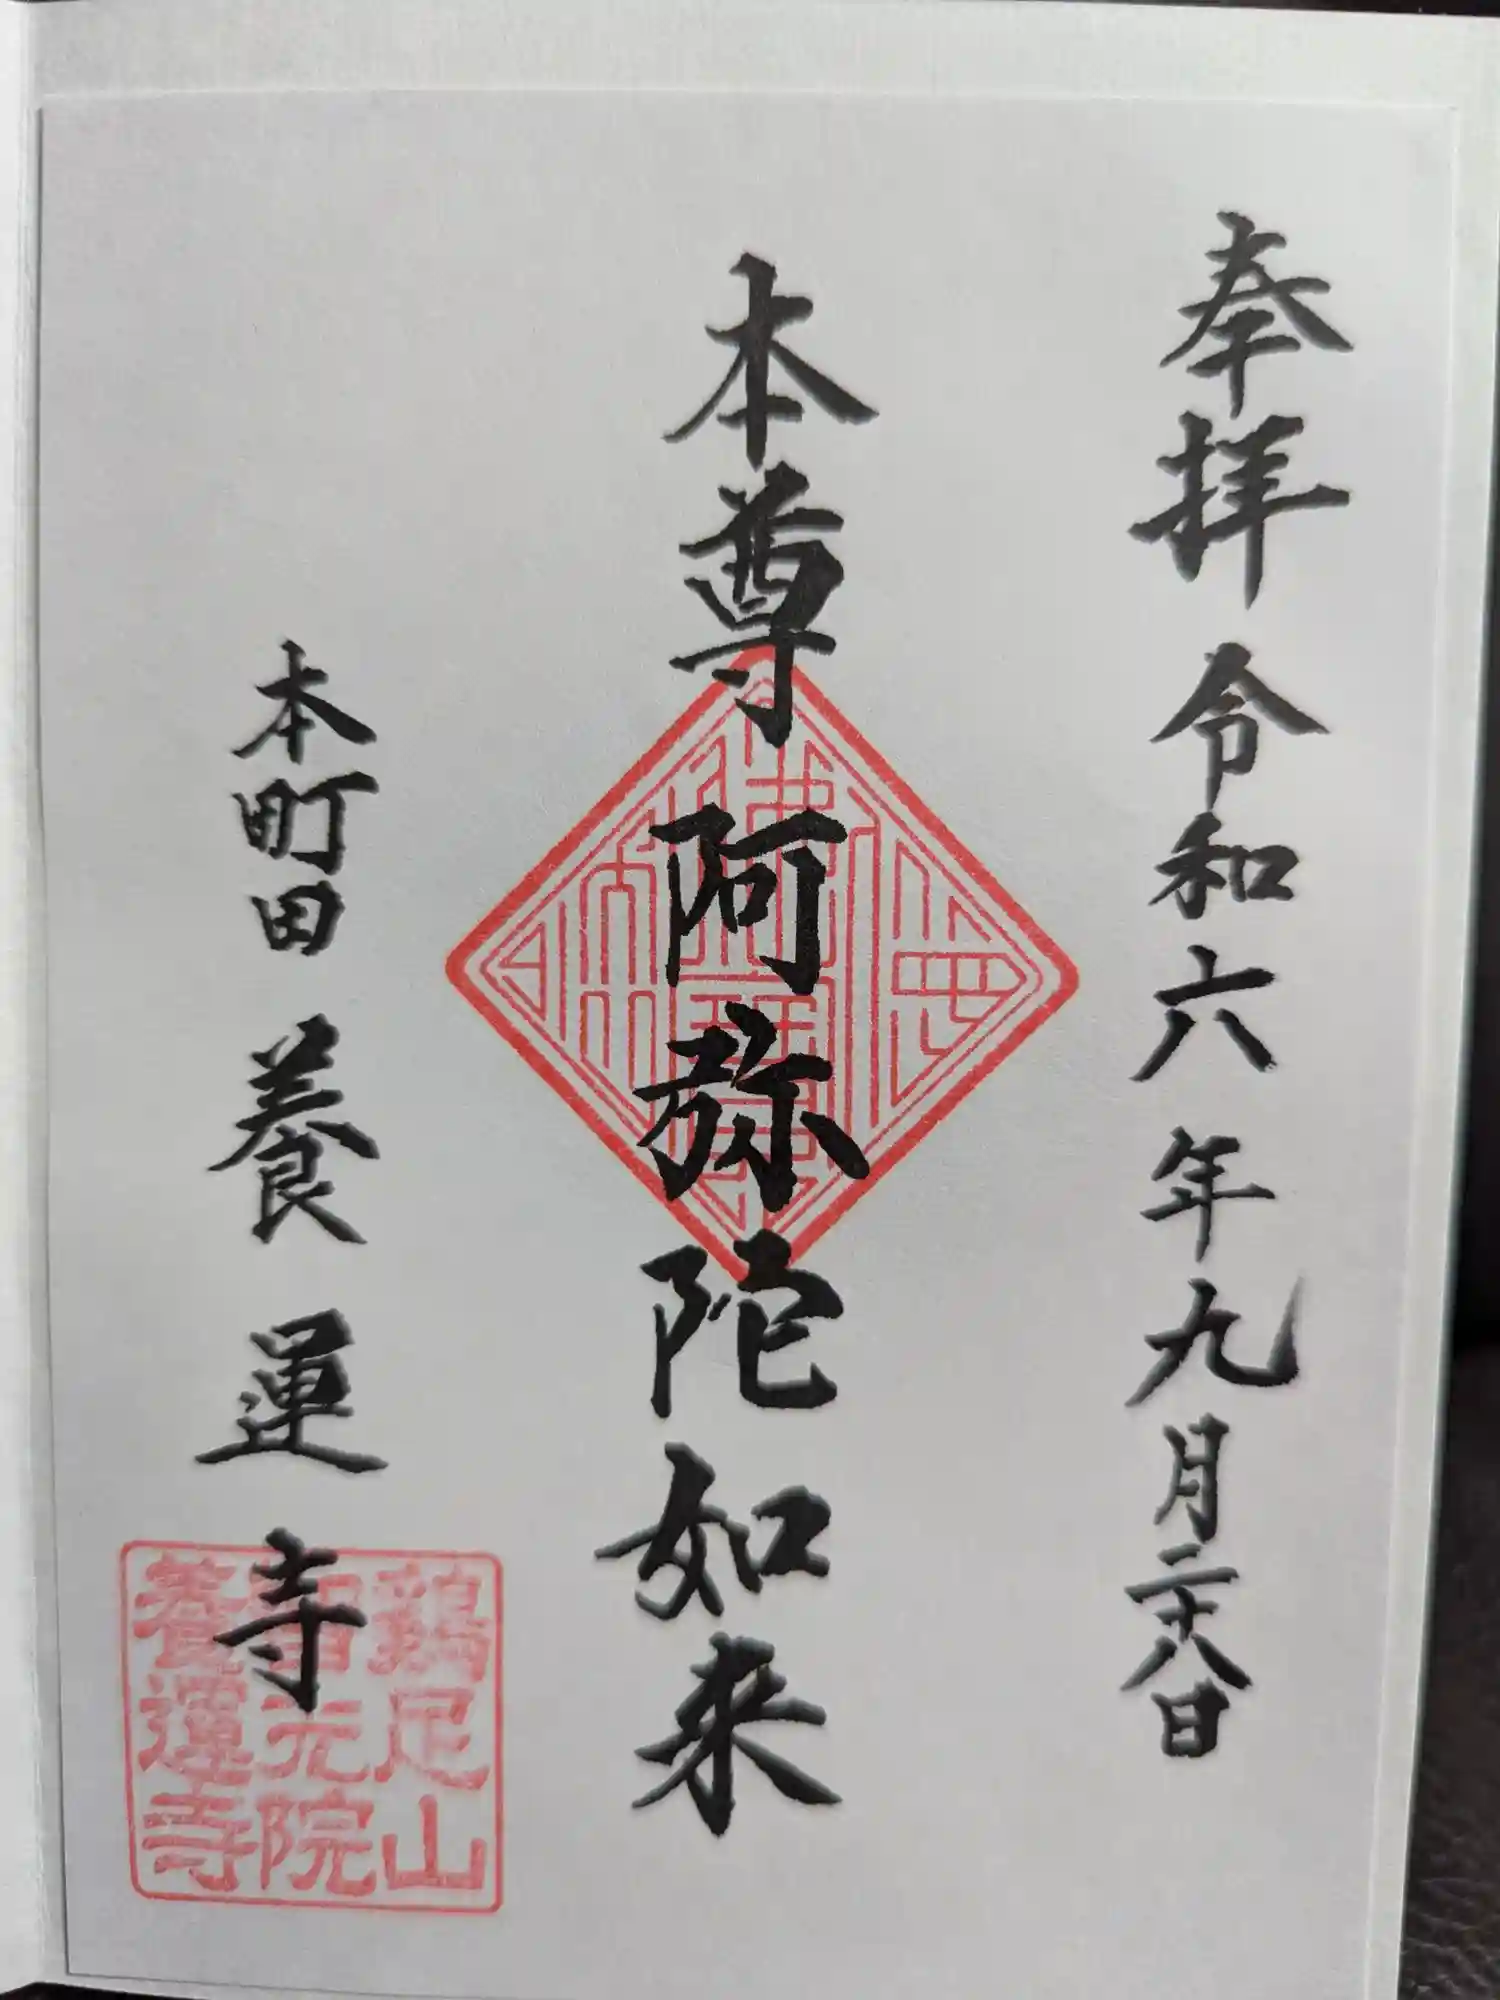 奉拝 令和六年九月二十八日
本尊 阿弥陀如来
本町田 養運寺
鶏足山
光院
養運寺